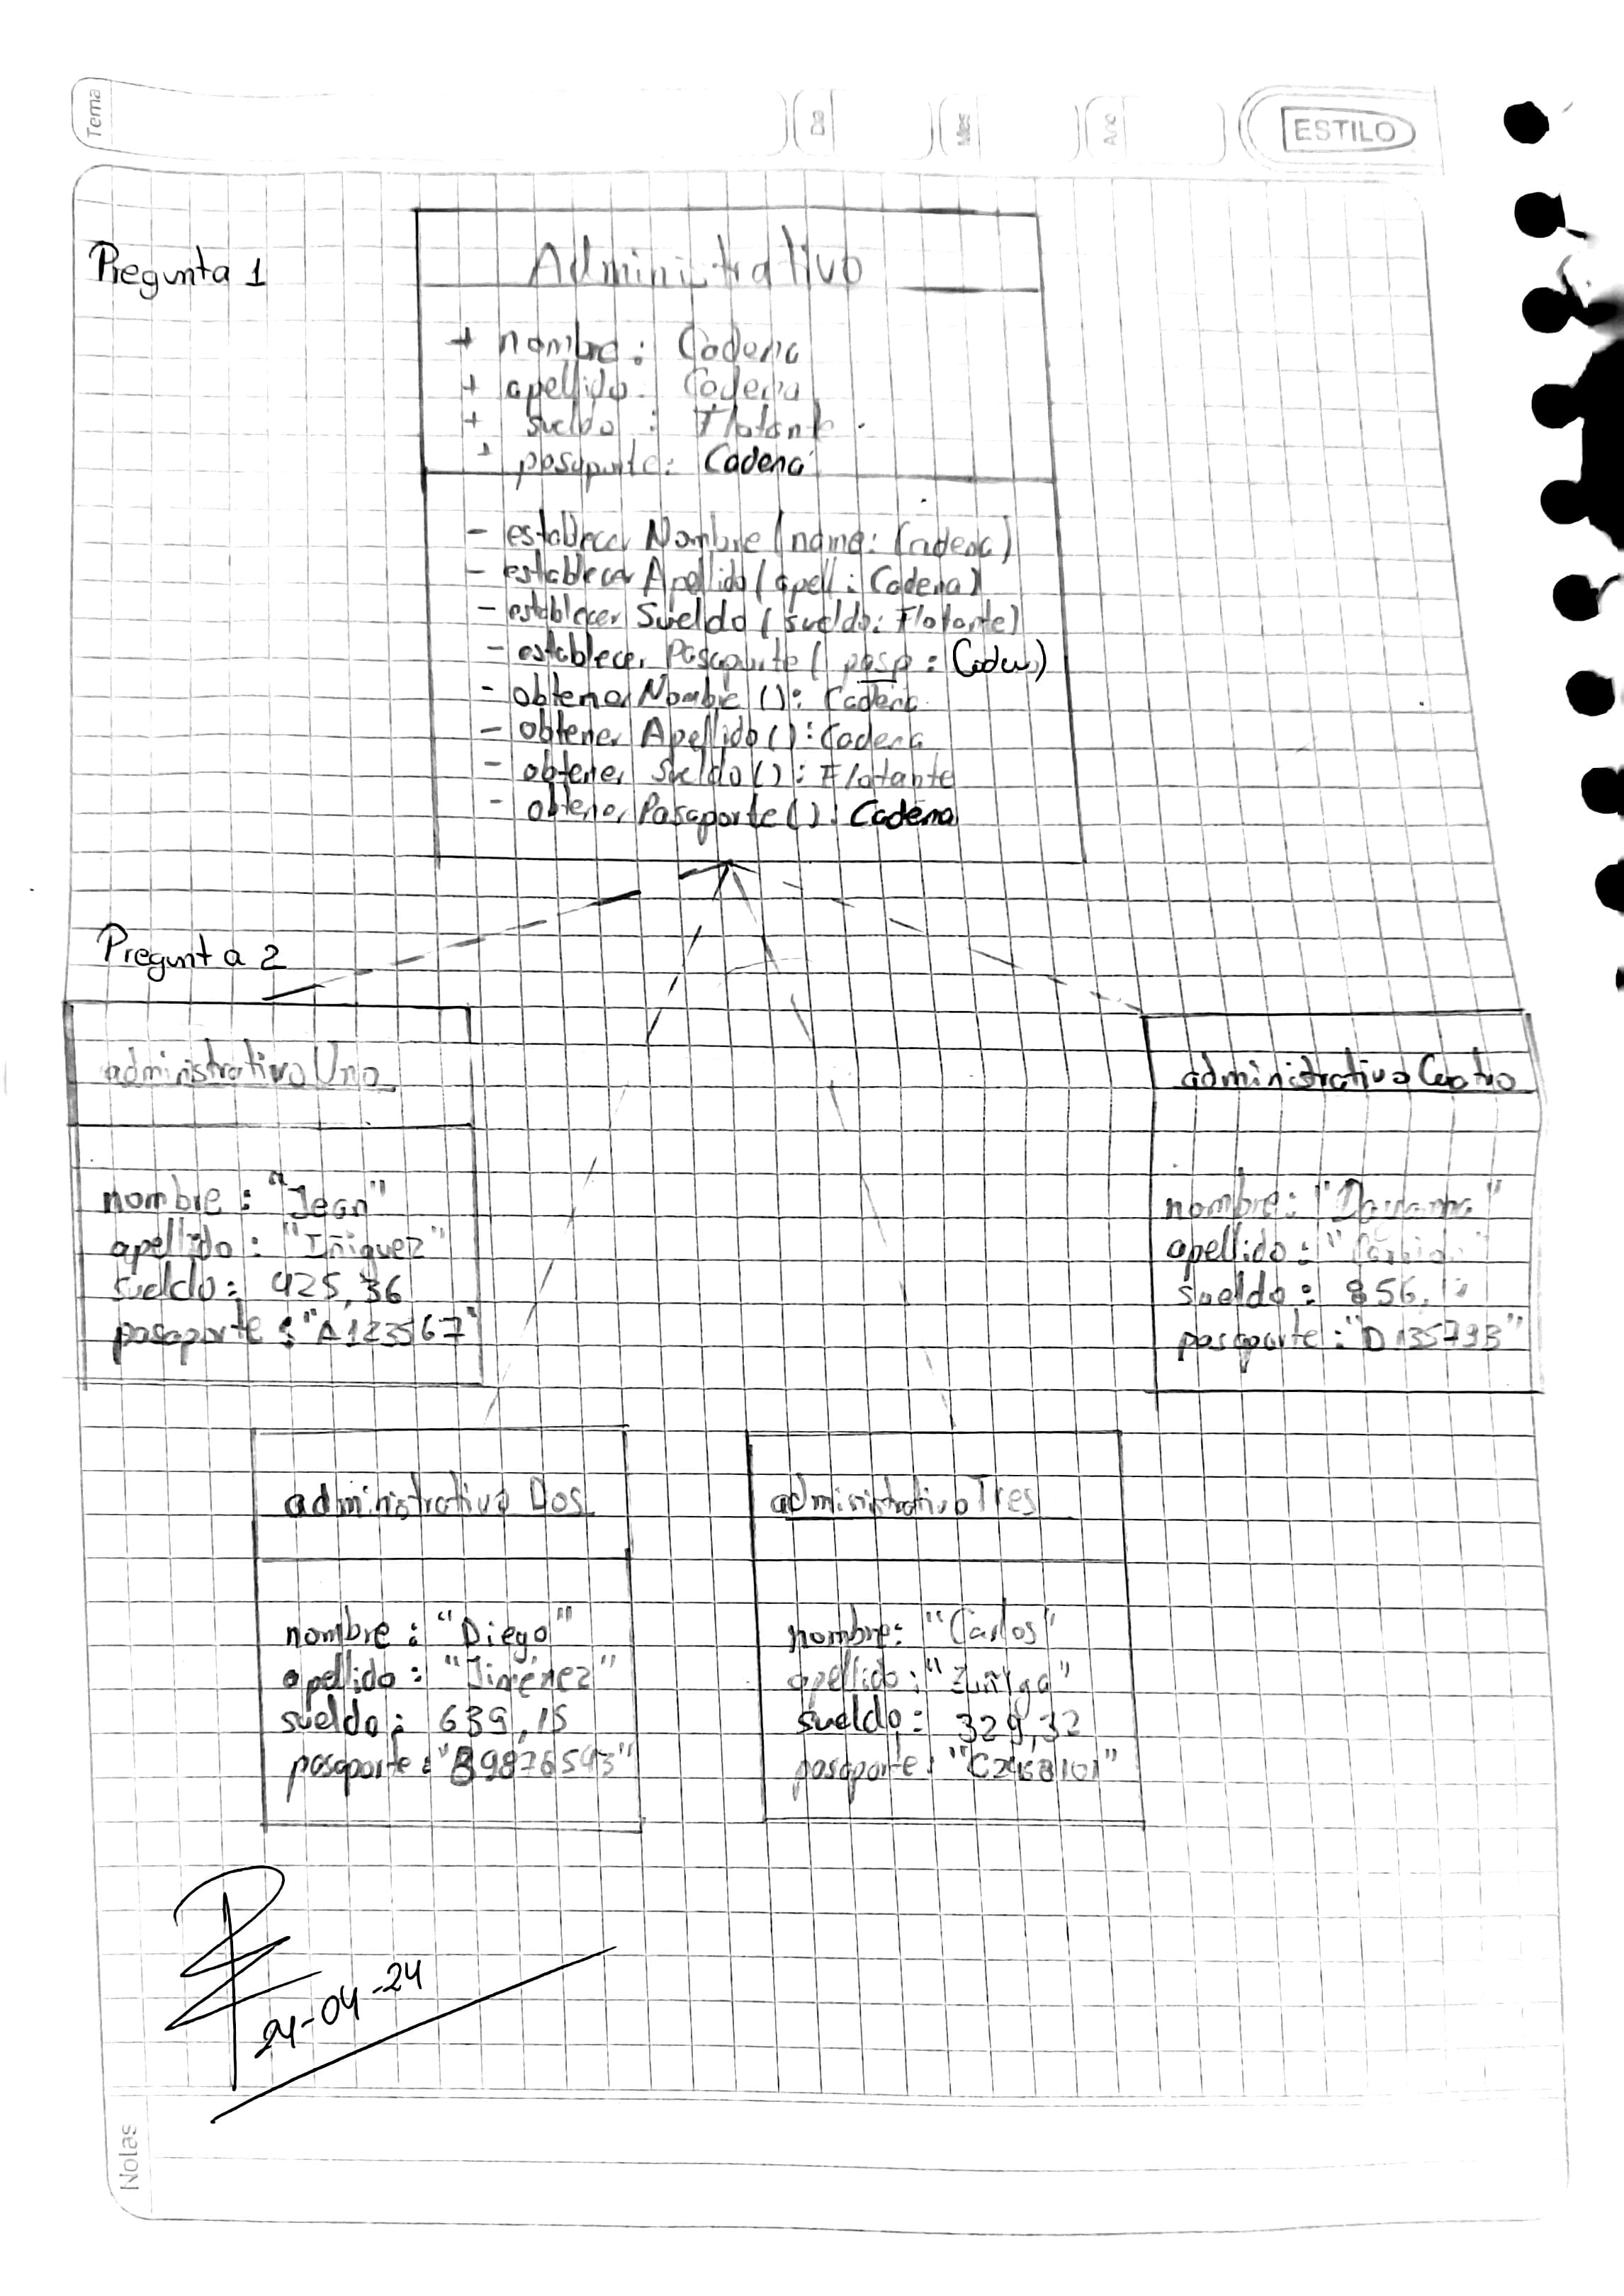 Tema
Dia
Mes
Año
ESTILO
Pregunta 1
Administrativo
+ nombre: Cadena
+ apellido: Cadena
+ sueldo: Flotante
+ pasaporte: Cadena
- establecer Nombre (name: Cadena)
- establecer Apellido (apell: Cadena)
- establecer Sueldo (sueldo: Flotante)
- establecer Pasaporte (pasp: Caden)
- obtener Nombre (): Cadena
- obtener Apellido (): Cadena
- obtener Sueldo (): Flotante
- obtener Pasaporte (): Cadena
Pregunta 2
administrativo Uno
nombre: "Jean"
apellido: "Iñiguez"
sueldo: 425,36
pasaporte: "A123567"
administrativo Cuatro
nombre: "Dayanna"
apellido: "
sueldo: 856,
pasaporte: "D13579B"
administrativo Dos
nombre: "Diego"
apellido: "Jiménez"
sueldo: 639,15
pasaporte: "B9876543"
administrativo Tres
nombre: "Carlos"
apellido: "Zuñiga"
sueldo: 329,32
pasaporte: "C2468101"
24-04-24
Notas